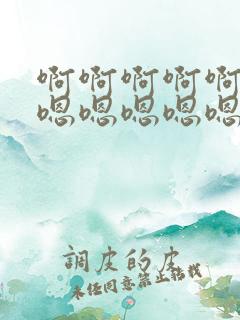 啊啊啊啊啊
嗯嗯嗯嗯嗯
調皮的皮
未經同意禁止轉載